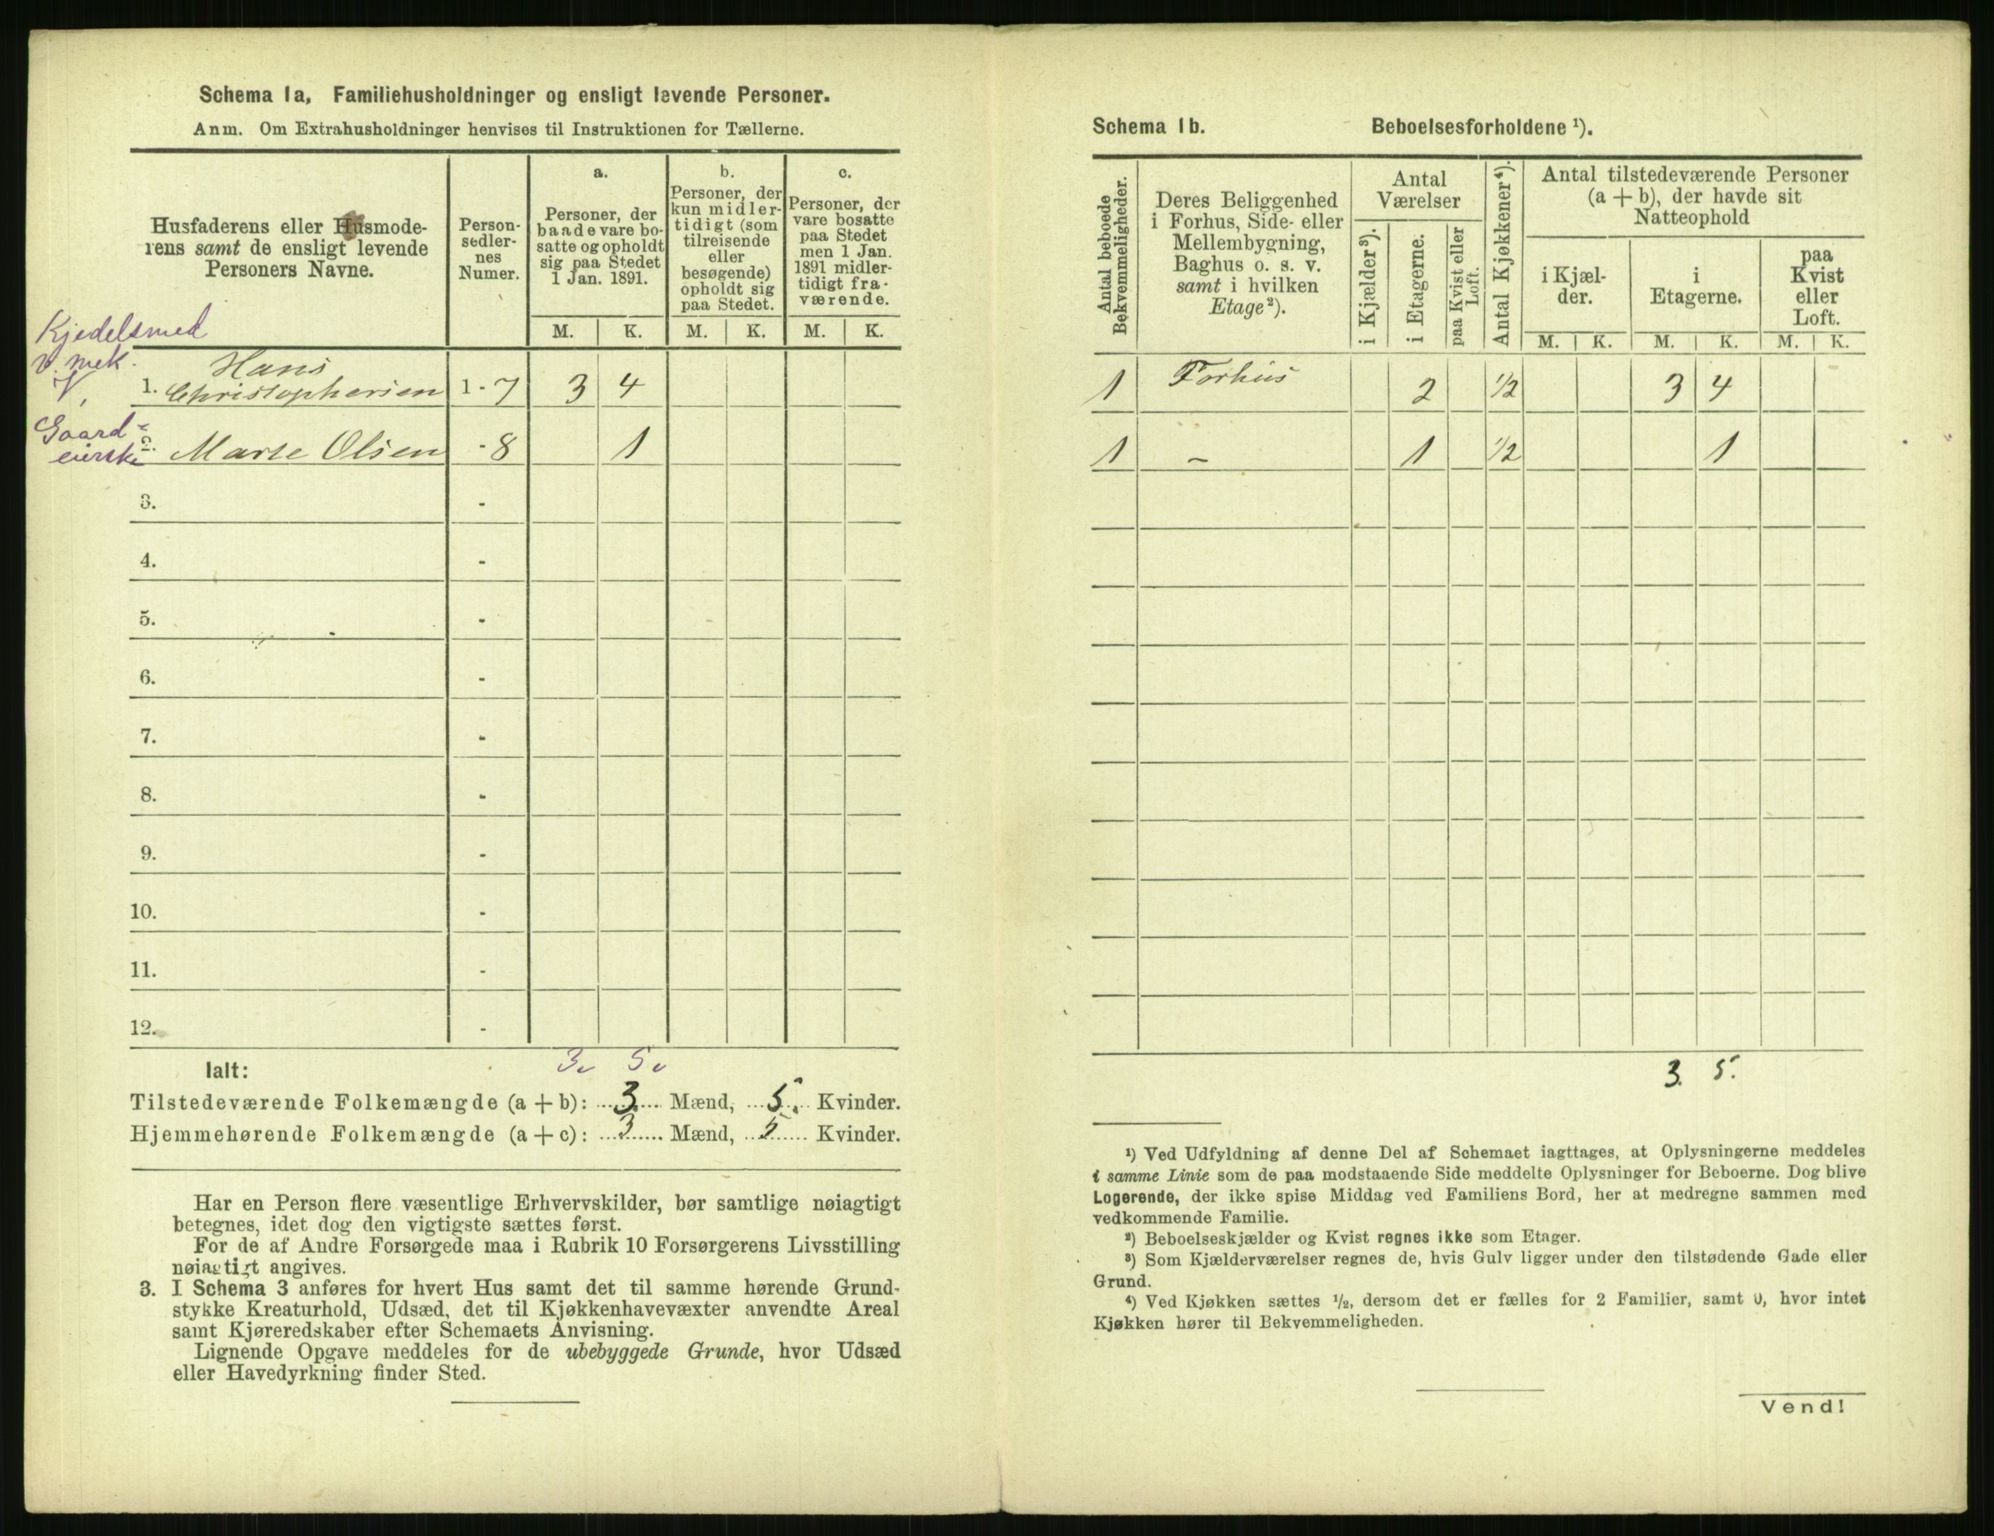 Schema 1a, Familiehusholdninger og ensligt levende Personer.
Anm. Om Extrahusholdninger henvises til Instruktionen for Tællerne.
Husfaderens eller Husmode-
rens samt de ensligt levende
Personers Navne.
Person-
sedler-
nes
Numer.
a.
Personer, der
baade vare bo-
satte og opholdt
sig paa Stedet
1 Jan. 1891.
b.
Personer, der
kun midler-
tidigt (som
tilreisende
eller
besøgende)
opholdt sig
paa Stedet.
c.
Personer, der
vare bosatte
paa Stedet
men 1 Jan.
1891 midler-
tidigt fra-
værende.
M. K. M. K. M. K.
Kjedelsmed
v. mek.
V,
1. Hans
Christophersen 1 - 7 3 4
Gaard-
eierske
2. Marte Olsen - 8 1
3. -
4. -
5. -
6. -
7. -
8. -
9. -
10. -
11. -
12. -
3 5
Ialt:
Tilstedeværende Folkemængde (a + b): 3 Mænd, 5 Kvinder.
Hjemmehørende Folkemængde (a + c): 3 Mænd, 5 Kvinder.
Har en Person flere væsentlige Erhvervskilder, bør samtlige nøiagtigt
betegnes, idet dog den vigtigste sættes først.
For de af Andre Forsørgede maa i Rubrik 10 Forsørgerens Livsstilling
nøiagtigt angives.
3. I Schema 3 anføres for hvert Hus samt det til samme hørende Grund-
stykke Kreaturhold, Udsæd, det til Kjøkkenhavevæxter anvendte Areal
samt Kjøreredskaber efter Schemaets Anvisning.
Lignende Opgave meddeles for de ubebyggede Grunde, hvor Udsæd
eller Havedyrkning finder Sted.
Schema 1b. Beboelsesforholdene ¹).
Antal beboede
Bekvemmeligheder.
Deres Beliggenhed
i Forhus, Side- eller
Mellembygning,
Baghus o. s. v.
samt i hvilken
Etage²).
Antal
Værelser
i Kjælder³).
i Etagerne.
paa Kvist eller
Loft.
Antal Kjøkkener⁴).
Antal tilstedeværende Personer
(a + b), der havde sit
Natteophold
i Kjæl-
der.
i
Etagerne.
paa
Kvist
eller
Loft.
M. K. M. K. M. K.
1 Forhus 2 1/2 3 4
1 – 1 1/2 1
3. 5.
¹) Ved Udfyldning af denne Del af Schemaet iagttages, at Oplysningerne meddeles
i samme Linie som de paa modstaaende Side meddelte Oplysninger for Beboerne. Dog blive
Logerende, der ikke spise Middag ved Familiens Bord, her at medregne sammen med
vedkommende Familie.
²) Beboelseskjælder og Kvist regnes ikke som Etager.
³) Som Kjælderværelser regnes de, hvis Gulv ligger under den tilstødende Gade eller
Grund.
⁴) Ved Kjøkken sættes ½, dersom det er fælles for 2 Familier, samt 0, hvor intet
Kjøkken hører til Bekvemmeligheden.
Vend!